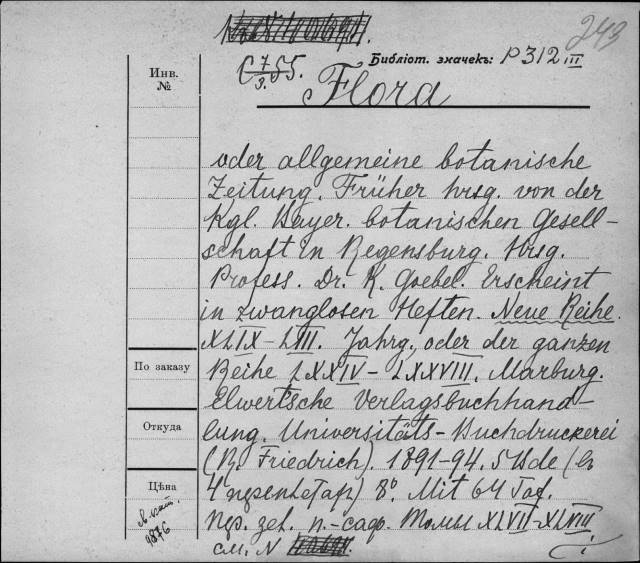 243
C 7/3.55.
Библіот. значекъ: P312 III
Инв.
№
Flora
oder allgemeine botanische
Zeitung. Früher hrsg. von der
Kgl. bayer. botanischen Gesell-
schaft in Regensburg. Hrsg.
Profess. Dr. K. Goebel. Erscheint
in zwanglosen Heften. Neue Reihe.
XLIX-LII. Jahrg. oder der ganzen
По заказу
Reihe LXXIV-LXXVIII. Marburg.
Elwertsche Verlagsbuchhand-
Откуда
lung. Universitäts-Buchdruckerei
(R. Friedrich). 1891-94. 5 Bde (в
Цѣна
4 переплетах) 8° Mit 64 Taf.
пер. зел. п.-саф. Томы XLVII-XLVIII
см. N
9876